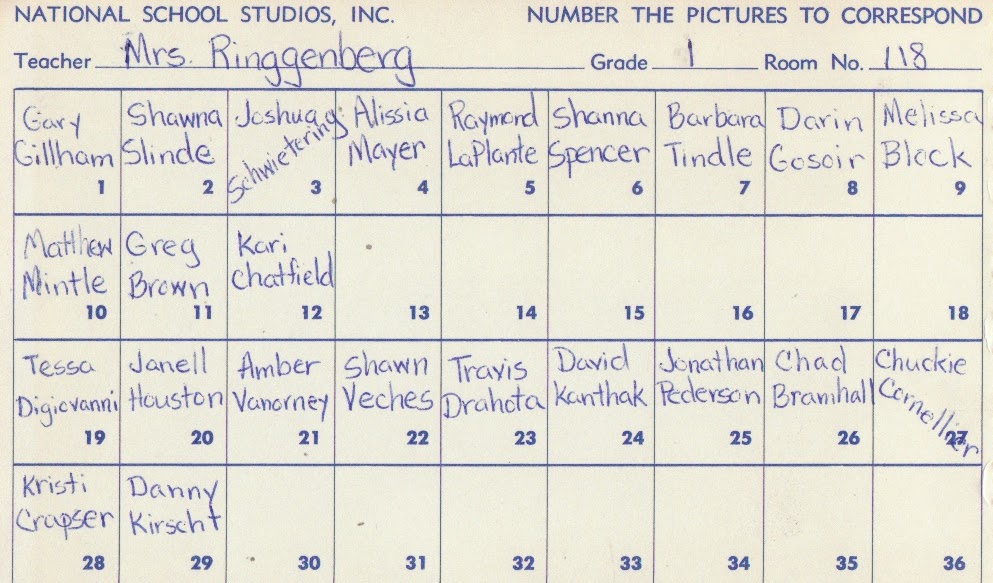 NATIONAL SCHOOL STUDIOS, INC. NUMBER THE PICTURES TO CORRESPOND
Teacher Mrs. Ringgenberg Grade 1 Room No. 118
Gary Gillham 1
Shawna Slinde 2
Joshua Schwietering 3
Alissia Mayer 4
Raymond LaPlante 5
Shanna Spencer 6
Barbara Tindle 7
Darin Gosoir 8
Melissa Block 9
Matthew Mintle 10
Greg Brown 11
Kari Chatfield 12
13
14
15
16
17
18
Tessa Digiovanni 19
Janell Houston 20
Amber Vanorney 21
Shawn Veches 22
Travis Drahota 23
David Kanthak 24
Jonathan Pederson 25
Chad Bramhall 26
Chuckie Cornellier 27
Kristi Crapser 28
Danny Kirscht 29
30
31
32
33
34
35
36